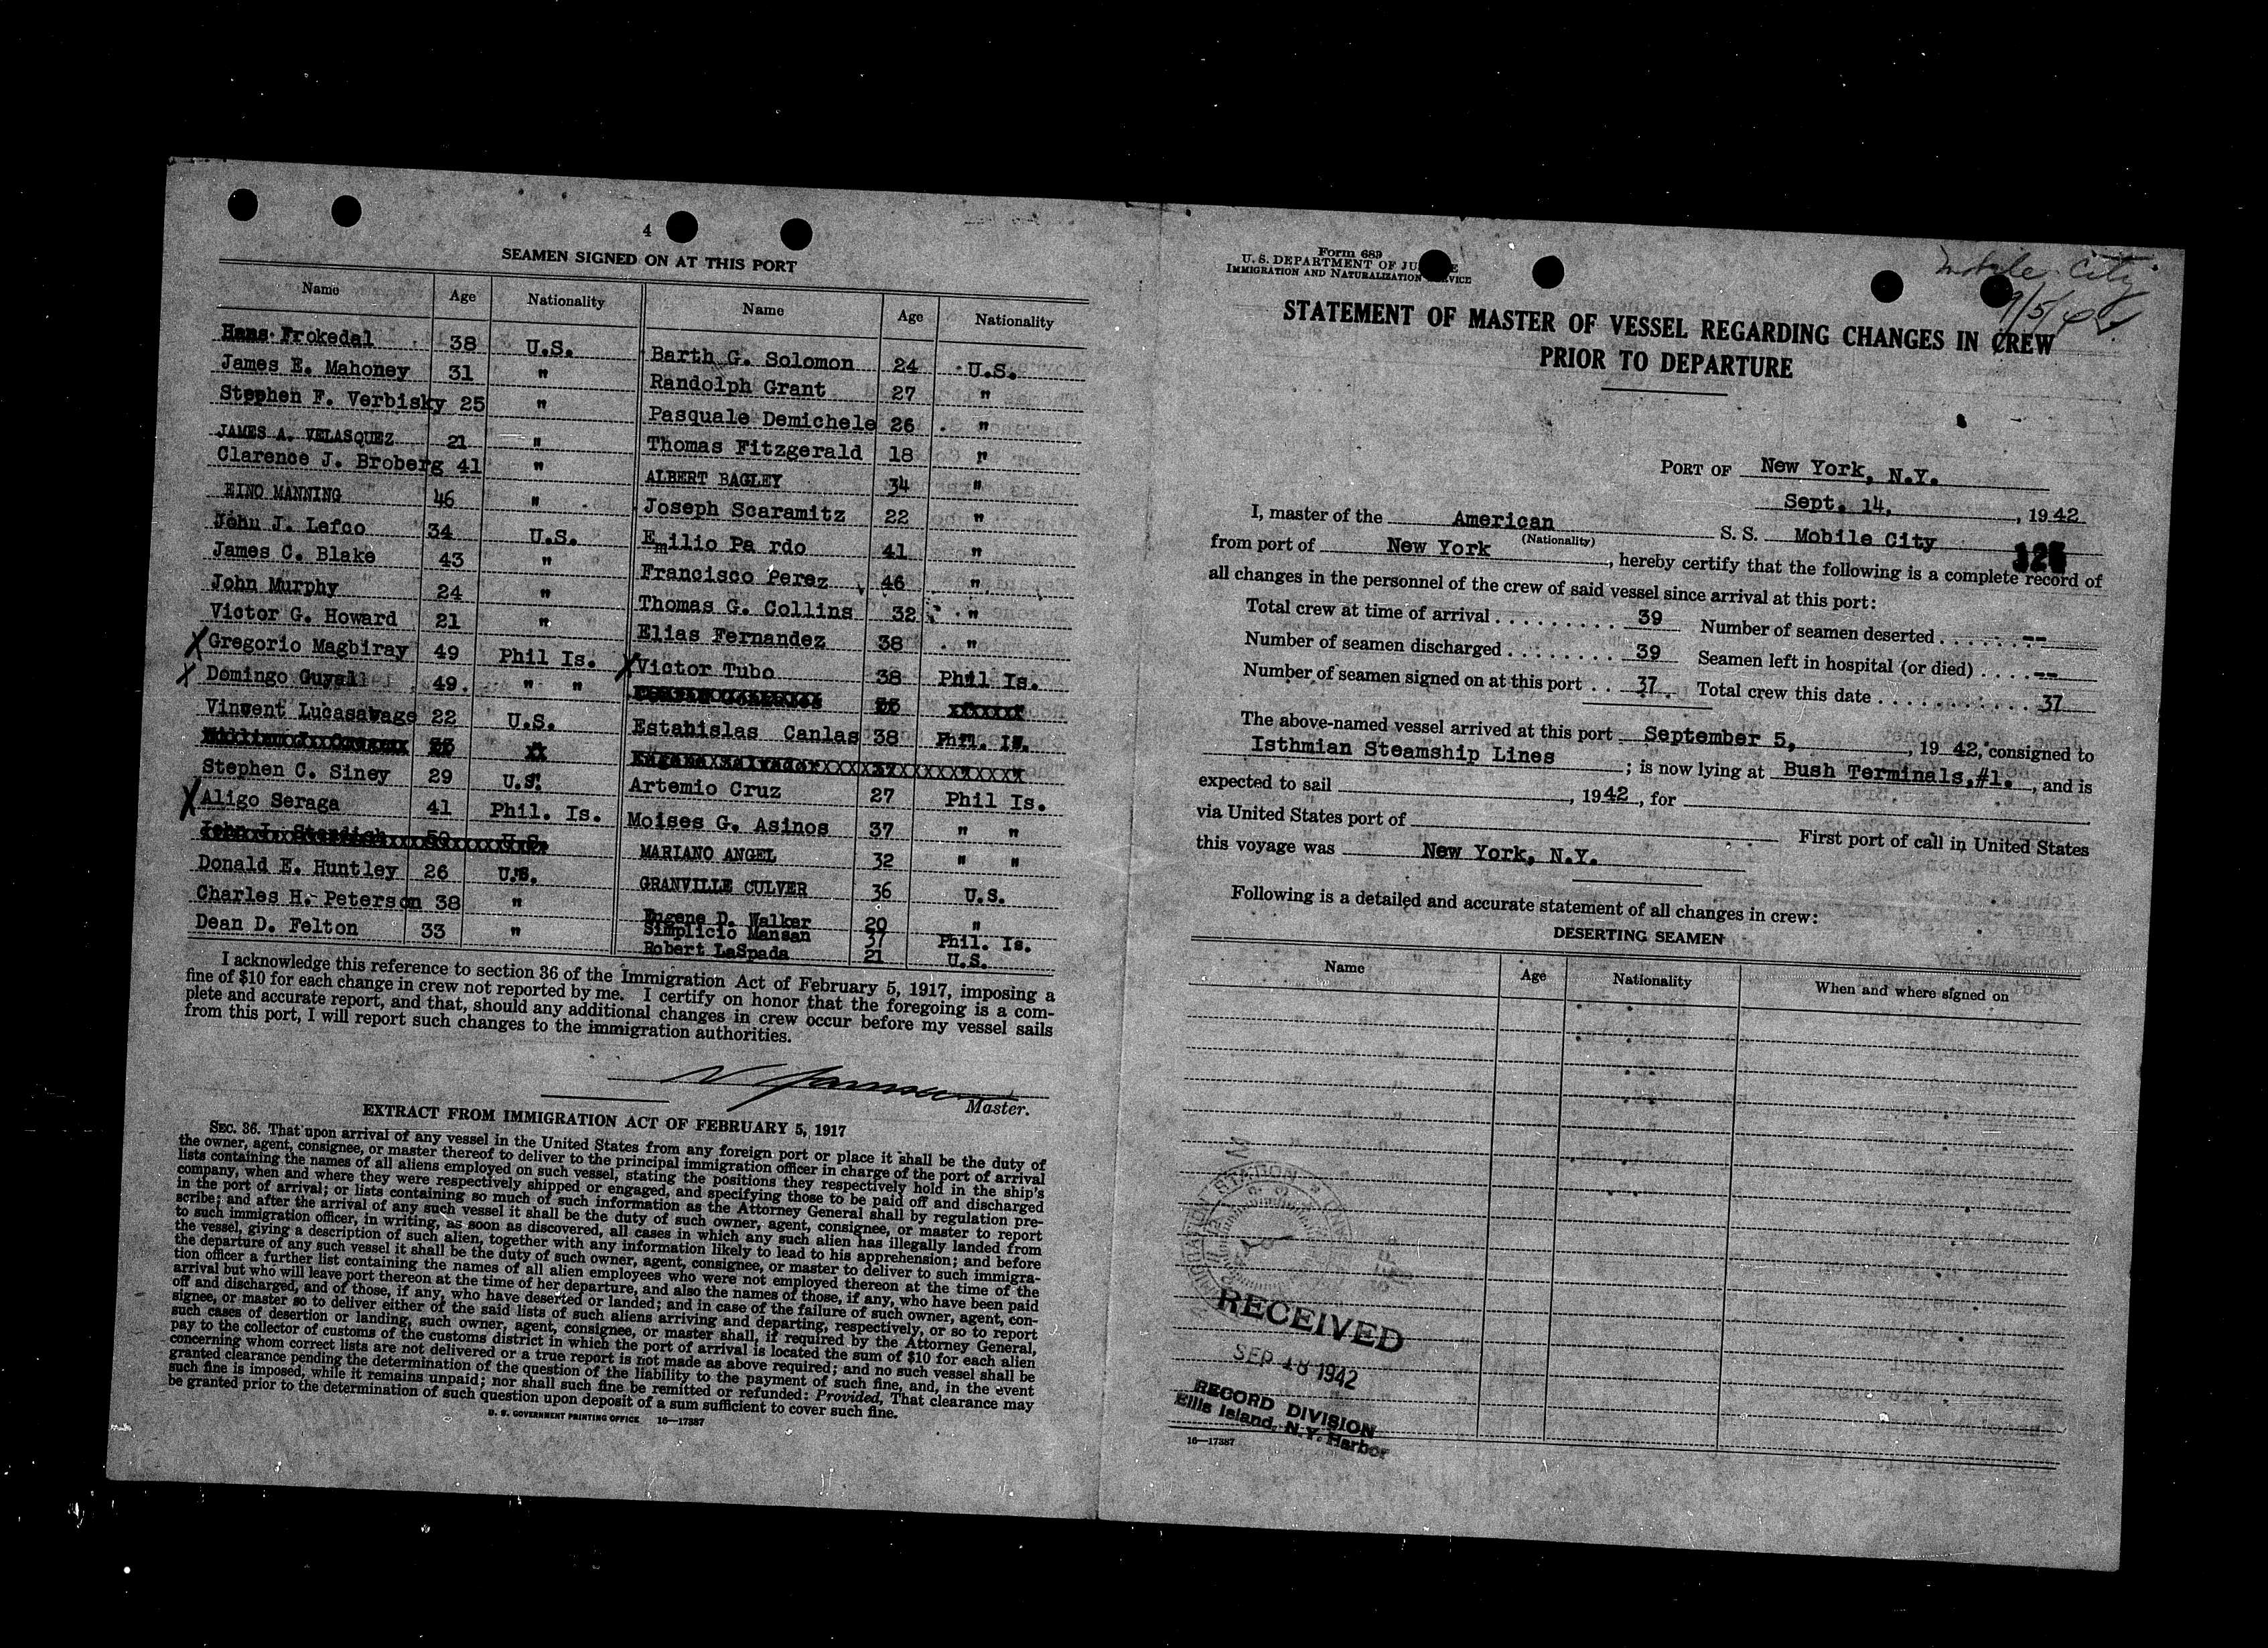 4
SEAMEN SIGNED ON AT THIS PORT
Name Age Nationality Name Age Nationality
Hans Frokedal 38 U.S. Barth G. Solomon 24 U.S.
James E. Mahoney 31 " Randolph Grant 27 "
Stephen F. Verbisky 25 " Pasquale Demichele 26 "
JAMES A. VELASQUEZ 21 " Thomas Fitzgerald 18 "
Clarence J. Broberg 41 " ALBERT BAGLEY 34 "
EINO MANNING 46 " Joseph Scaramitz 22 "
John J. Lefco 34 U.S. Emilio Pa rdo 41 "
James C. Blake 43 " Francisco Perez 46 "
John Murphy 24 " Thomas G. Collins 32 "
Victor G. Howard 21 " Elias Fernandez 38 "
X Gregorio Magbiray 49 Phil Is. X Victor Tubo 38 Phil Is.
X Domingo Guyall 49. " "
Vincent Lucasavage 22 U.S. Estanislas Canlas 38 Phil. Is.
Stephen C. Siney 29 U.S. Artemio Cruz 27 Phil Is.
X Aligo Seraga 41 Phil. Is. Moises G. Asinos 37 " "
MARIANO ANGEL 32 " "
Donald E. Huntley 26 U.S. GRANVILLE CULVER 36 U.S.
Charles H. Peterson 38 " Eugene D. Walker 20 "
Simplicio Mansan 37 Phil. Is.
Dean D. Felton 33 " Robert LaSpada 21 U.S.
I acknowledge this reference to section 36 of the Immigration Act of February 5, 1917, imposing a
fine of $10 for each change in crew not reported by me. I certify on honor that the foregoing is a com-
plete and accurate report, and that, should any additional changes in crew occur before my vessel sails
from this port, I will report such changes to the immigration authorities.
Master.
EXTRACT FROM IMMIGRATION ACT OF FEBRUARY 5, 1917
SEC. 36. That upon arrival of any vessel in the United States from any foreign port or place it shall be the duty of
the owner, agent, consignee, or master thereof to deliver to the principal immigration officer in charge of the port of arrival
lists containing the names of all aliens employed on such vessel, stating the positions they respectively hold in the ship's
company, when and where they were respectively shipped or engaged, and specifying those to be paid off and discharged
in the port of arrival; or lists containing so much of such information as the Attorney General shall by regulation pre-
scribe; and after the arrival of any such vessel it shall be the duty of such owner, agent, consignee, or master to report
to such immigration officer, in writing, as soon as discovered, all cases in which any such alien has illegally landed from
the vessel, giving a description of such alien, together with any information likely to lead to his apprehension; and before
the departure of any such vessel it shall be the duty of such owner, agent, consignee, or master to deliver to such immigra-
tion officer a further list containing the names of all alien employees who were not employed thereon at the time of the
arrival but who will leave port thereon at the time of her departure, and also the names of those, if any, who have been paid
off and discharged, and of those, if any, who have deserted or landed; and in case of the failure of such owner, agent, con-
signee, or master so to deliver either of the said lists of such aliens arriving and departing, respectively, or so to report
such cases of desertion or landing, such owner, agent, consignee, or master shall, if required by the Attorney General,
pay to the collector of customs of the customs district in which the port of arrival is located the sum of $10 for each alien
concerning whom correct lists are not delivered or a true report is not made as above required; and no such vessel shall be
granted clearance pending the determination of the question of the liability to the payment of such fine, and, in the event
such fine is imposed, while it remains unpaid; nor shall such fine be remitted or refunded: Provided, That clearance may
be granted prior to the determination of such question upon deposit of a sum sufficient to cover such fine.
U. S. GOVERNMENT PRINTING OFFICE 16—17387
Form 689
U. S. DEPARTMENT OF JUSTICE
IMMIGRATION AND NATURALIZATION SERVICE
Mobile City
9/5/42
STATEMENT OF MASTER OF VESSEL REGARDING CHANGES IN CREW
PRIOR TO DEPARTURE
PORT OF New York, N.Y.
Sept. 14, , 1942
I, master of the American S. S. Mobile City
(Nationality)
126
from port of New York , hereby certify that the following is a complete record of
all changes in the personnel of the crew of said vessel since arrival at this port:
Total crew at time of arrival . . . . . . . . . 39 Number of seamen deserted . . . . . . --
Number of seamen discharged . . . . . . . . 39 Seamen left in hospital (or died) . . . . --
Number of seamen signed on at this port . . 37 Total crew this date . . . . . . . . . . . . 37
The above-named vessel arrived at this port September 5, , 19 42, consigned to
Isthmian Steamship Lines ; is now lying at Bush Terminals,#1. , and is
expected to sail , 1942 , for
via United States port of First port of call in United States
this voyage was New York, N.Y.
Following is a detailed and accurate statement of all changes in crew:
DESERTING SEAMEN
Name Age Nationality When and where signed on
RECEIVED
SEP 18 1942
RECORD DIVISION
Ellis Island, N.Y. Harbor
16—17387